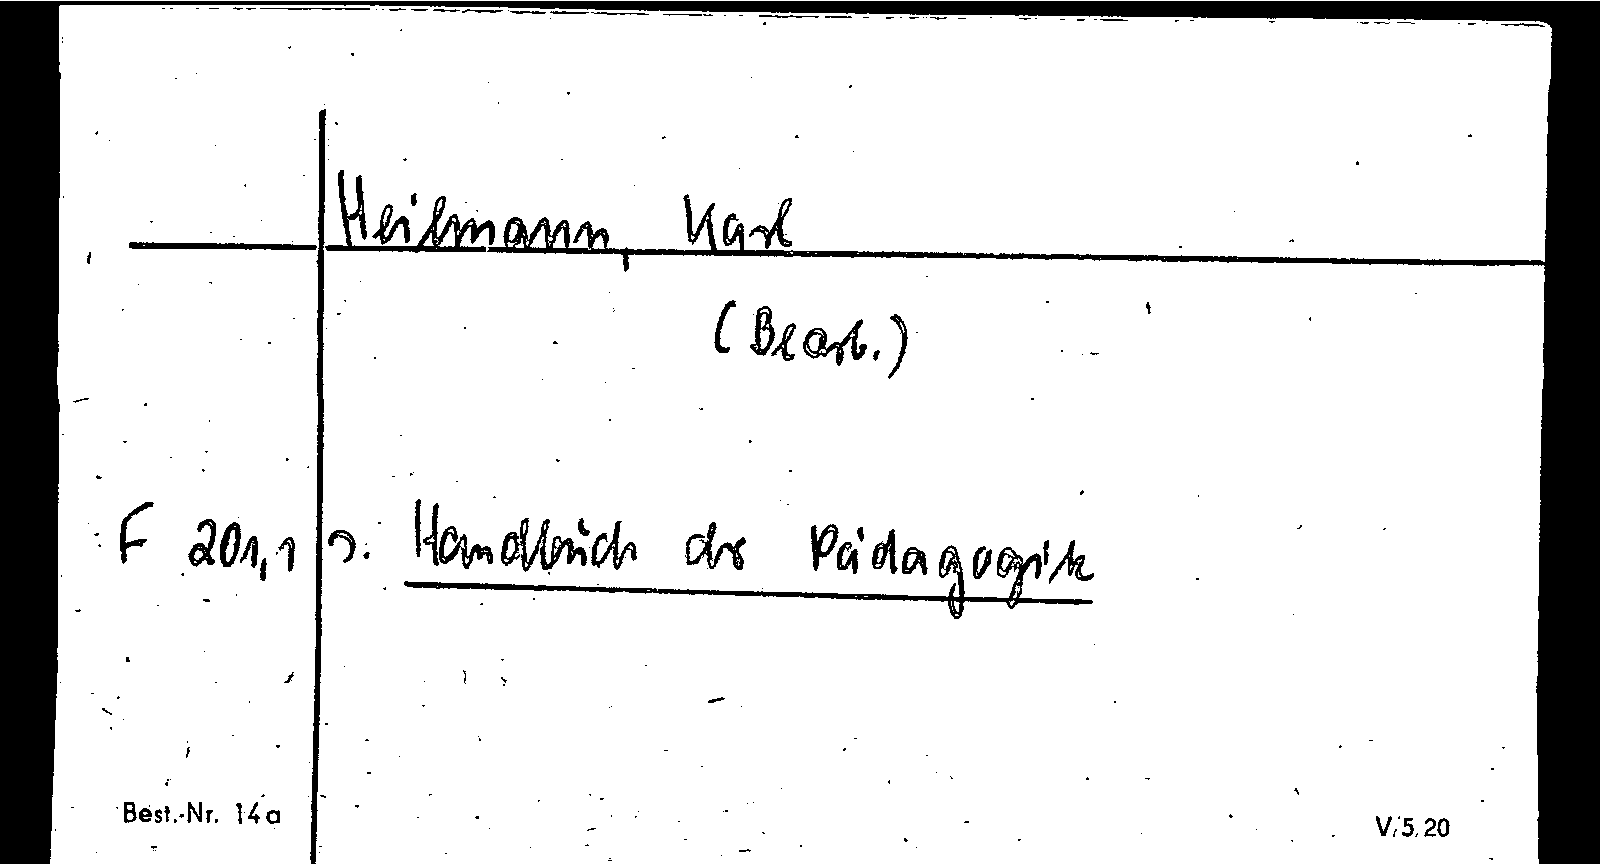 Heilmann, Karl
(Bearb.)
F 201,1 s. Handbuch der Pädagogik
Best.-Nr. 14a V/5.20